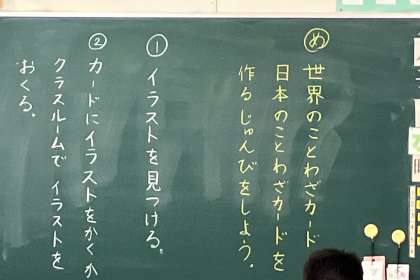 め 世界のことわざカード
日本のことわざカードを
作るじゅんびをしよう。
① イラストを見つける。
② カードにイラストをかくか
クラスルームで イラストを
おくる。